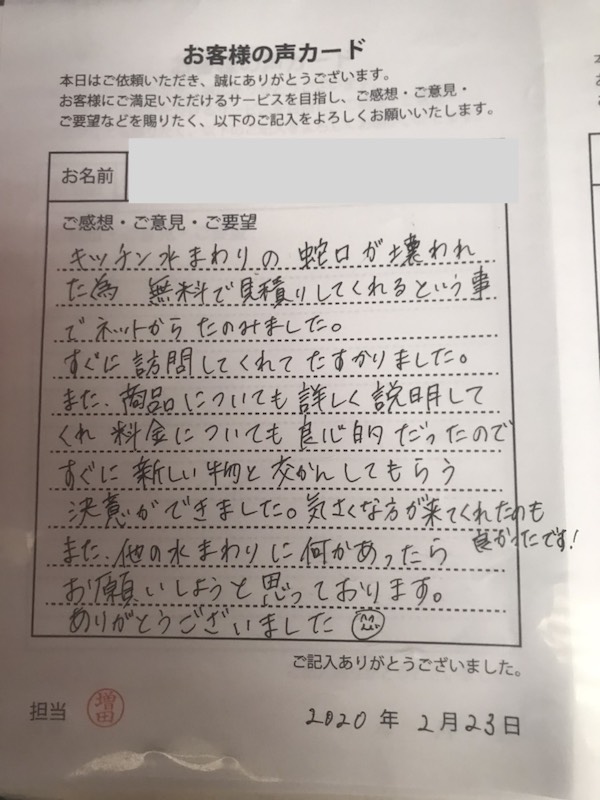 お客様の声カード
本日はご依頼いただき、誠にありがとうございます。
お客様にご満足いただけるサービスを目指し、ご感想・ご意見・
ご要望などを賜りたく、以下のご記入をよろしくお願いいたします。
お名前
ご感想・ご意見・ご要望
キッチン水まわりの蛇口が壊われ
た為 無料で見積りしてくれるという事
でネットからたのみました。
すぐに訪問してくれてたすかりました。
また、商品についても詳しく説明して
くれ 料金についても良心的だったので
すぐに新しい物と交かんしてもらう
決意ができました。気さくな方が来てくれたのも
良かったです!
また、他の水まわりに何かあったら
お願いしようと思っております。
ありがとうございました
ご記入ありがとうございました。
担当 増田
2020年 2月23日